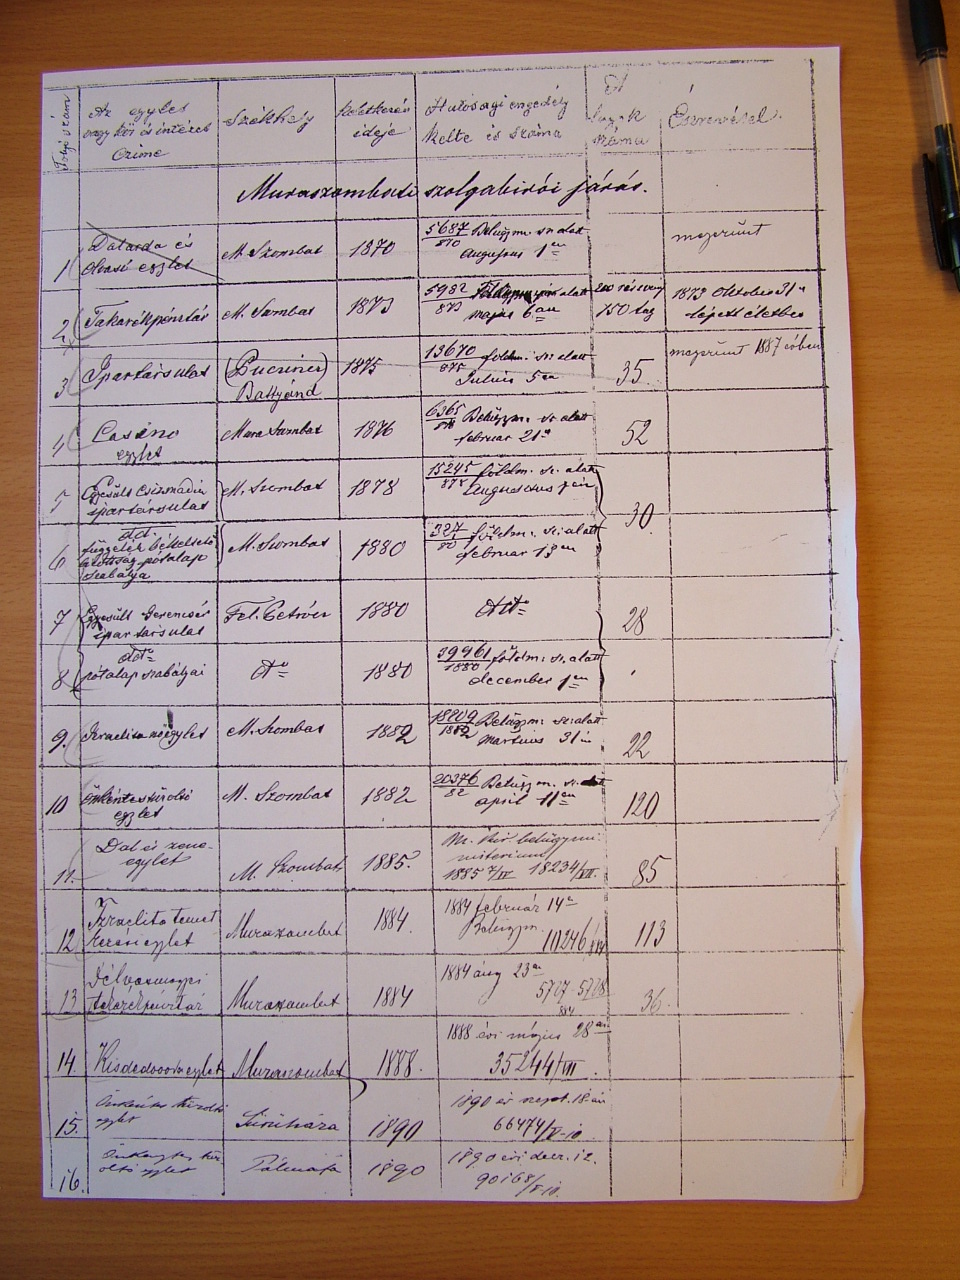 Az egylet
vagy kör és intézet
czime
Székhely
keletkezés
ideje
Hatósági engedély
kelte és száma
A
tagok
száma
Észrevétel.
Muraszombati szolgabirói járás.
1
olvasó egylet
M. Szombat
1870
5687/870 Belügym. sz. alatt
augustus 1én
megszünt
2
Takarékpénztár
M. Szombat
1873
5982/873
május 6án
200 részvény
150 tag
1873 Oktober 31én
lépett életbe
3
Ipartársulat
Battyánd
1875
13670/875 földm. sz. alatt
Julius 5én
35
megszünt 1887 évben
4
Casino
egylet
Mura Szombat
1876
6365 Belügym. sz. alatt
februar 21én
52
5
Egyesült csizmadia
ipartársulat
M. Szombat
1878
15245/878 földm. sz. alatt
Augusztus
6
független békéltető
bizottság pótalap
szabálya
M. Szombat
1880
327/80 földm. sz. alatt
februar 13án
30
7
Egyesült Gerencsér
ipartársulat
1880
28
8
pótalap szabályai
dto
1880
39961/1880 földm. sz. alatt
december 1én
9.
Izraelita nőegylet
M. Szombat
1882
18209/1882 Belügym. sz. alatt
Martius 31én
22
10
önkéntes tüzoltó
egylet
M. Szombat
1882
20376/82 Belügym. sz. alatt
april 11én
120
11.
Dal és zene-
egylet
M. Szombat
1885.
M. kir. belügymi-
nisterium
1885 7/IV 18234/VII.
85
12
Izraelita temet
kezési egylet
Muraszombat
1884.
1884 február 14én
Belügym.
10246/VII
113
13
Délvasmegyei
takarékpénztár
Muraszombat
1884
1884 aug 23án
5707-5708
884
36.
14.
Kisdedovoda egylet
Muraszombat
1888.
1888 évi május 28án
35244/VII.
15.
önkéntes tüzoltó
egylet
Szürüháza
1890
1890 év szept. 18án
66474/V-10.
16.
önkéntes tűz
oltó egylet
Pálmafa
1890
1890 évi decz. 12.
90168/V.10.